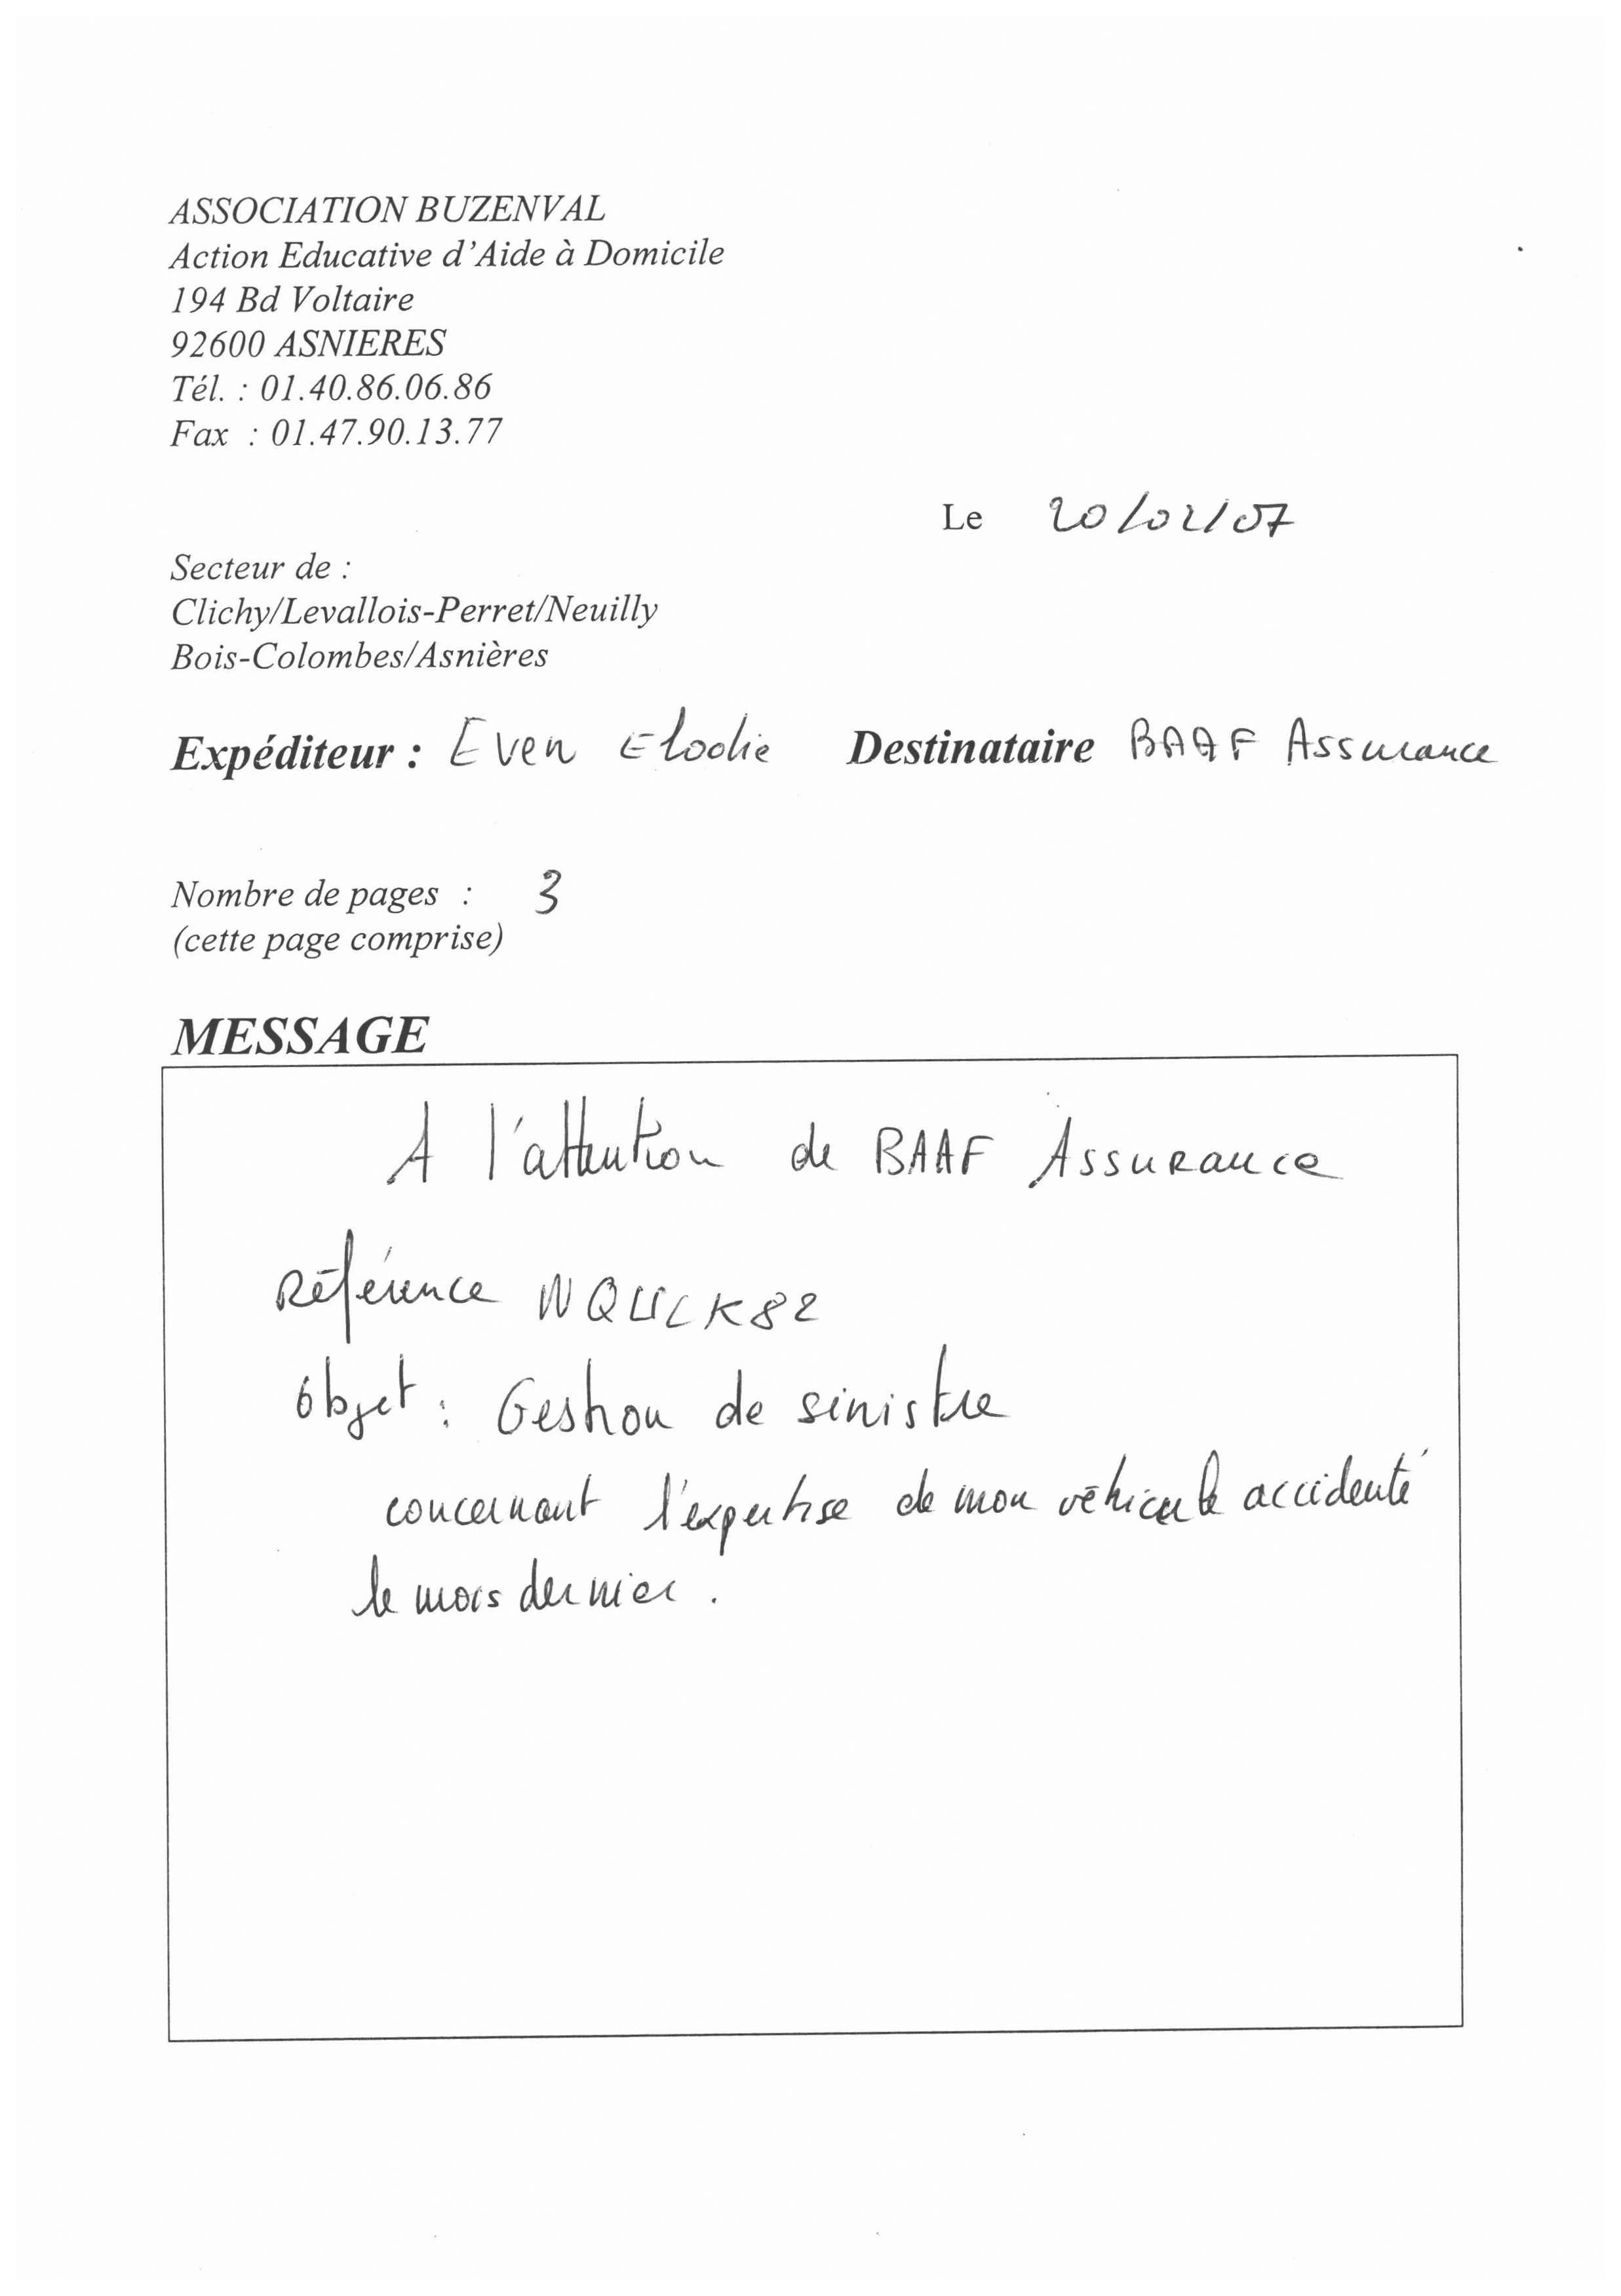 ASSOCIATION BUZENVAL
Action Educative d'Aide à Domicile
194 Bd Voltaire
92600 ASNIERES
Tél. : 01.40.86.06.86
Fax : 01.47.90.13.77
Le 20/02/07
Secteur de :
Clichy/Levallois-Perret/Neuilly
Bois-Colombes/Asnières
Expéditeur : Even Elodie Destinataire BAAF Assurance
Nombre de pages : 3
(cette page comprise)
MESSAGE
A l'attention de BAAF Assurance
Référence
Objet : Gestion de sinistre
concernant l'expertise de mon véhicule accidenté
le mois dernier.